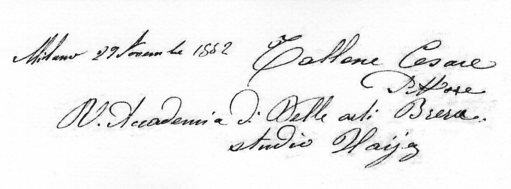 Milano 29 Novembre 1882
Tallone Cesare
Pittore
R. Accademia di Belle arti Brera.
studio Hayez